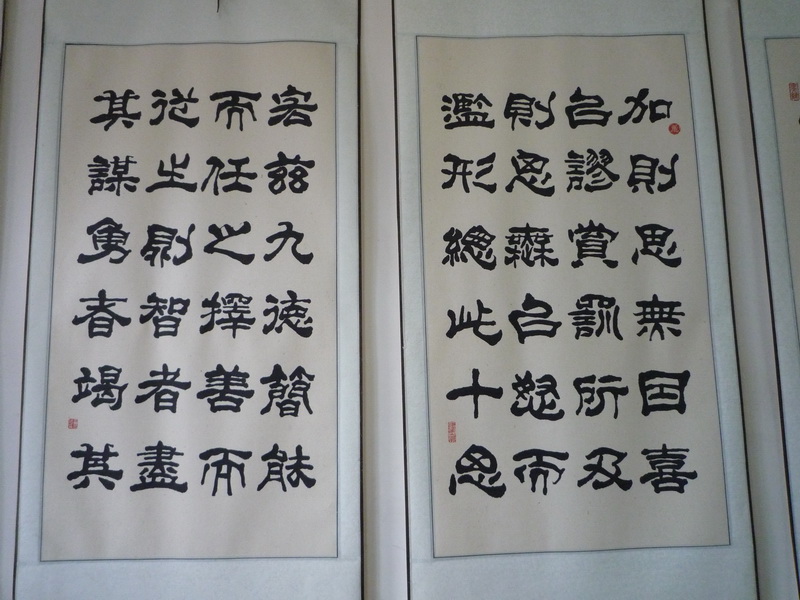 加則思無因喜
以謬賞罰所及
則思無以怒而
濫刑總此十思
宏兹九德簡能
而任之擇善而
從之則智者盡
其謀勇者竭其